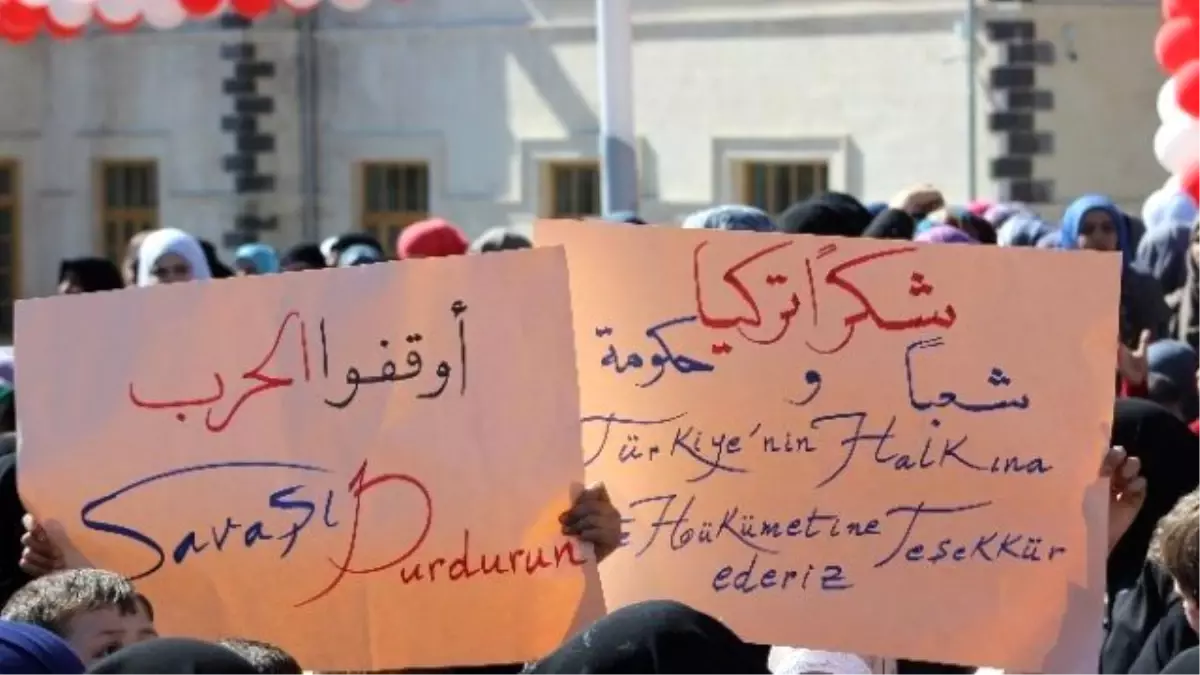 أوقفوا الحرب
Savaşı Durdurun
شكراً تركيا
شعباً و حكومة
Türkiye'nin Halkına
Hükümetine Teşekkür
ederiz